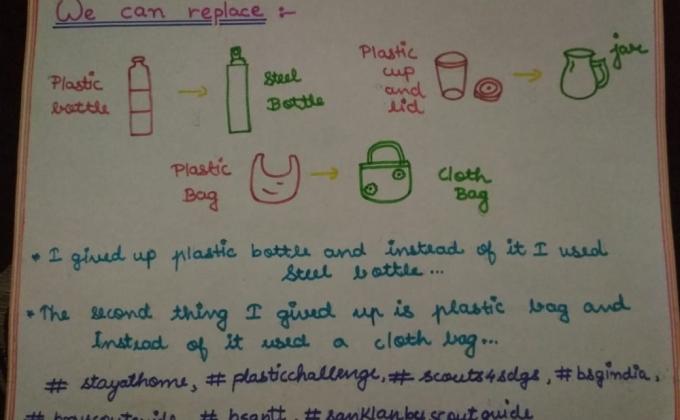 We can replace :-
Plastic bottle
Steel Bottle
Plastic cup and lid
jar
Plastic Bag
Cloth Bag
* I gived up plastic bottle and instead of it I used
Steel bottle...
* The second thing I gived up is plastic bag and
Instead of it used a cloth bag...
# stayathome, # plasticchallenge, # scouts4sdgs, # bsgindia,
# bsgntt, #